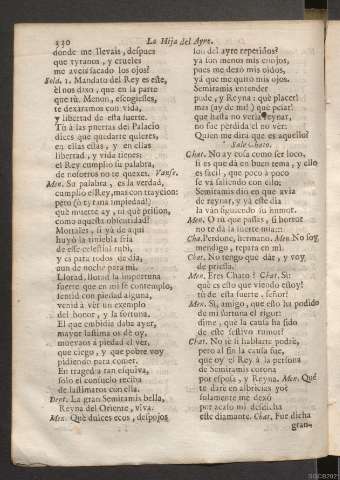 330 La Hija del Ayre.
donde me llevais, despues
que tyranos, y crueles
me aveis sacado los ojos?
Sold. 1. Mandato del Rey es este,
èl nos dixo, que en la parte
que tù, Menon, escogiesses,
te dexaramos con vida,
y libertad de esta suerte.
Tù à las puertas de Palacio
dices que quedarte quieres,
en ellas estàs, y en ellas
libertad, y vida tienes:
el Rey cumpliò su palabra,
de nosotros no te quexes. Vanse.
Men. Su palabra, es la verdad,
cumpliò el Rey, mas con traycion:
pero (ò tyrana impiedad!)
què muerte ay, ni què prision,
como aquesta obscuridad?
Mortales, si yà de aqui
huyò la tiniebla fria
de esse celestial rubi,
y es para todos de dia,
aun de noche para mì.
Llorad, llorad la importuna
fuerte que en mi se contemplo,
sentid con piedad alguna,
venid à vèr un exemplo
del honor, y la fortuna.
El que embidia daba ayer,
mayor lastima os dè oy,
muevaos à piedad el vèr,
que ciego, y que pobre voy
pidiendo para comer.
En tragedia tan esquiva,
solo el consuelo reciba
de lastimaros con ella.
Dent. La gran Semiramis bella,
Reyna del Oriente, viva.
Men. Què dulces ecos, despojos
son del ayre repetidos?
yà son menos mis enojos,
pues me dexò mis oidos,
yà que me quitò mis ojos.
Semiramis entender
pude, y Reyna: què placer!
mas (ay de mi!) què pesar!
que hasta no verla reynar,
no fue perdida el no vèr:
Quien me dirà que es aquello?
Sale Chato.
Chat. No ay cosa como ser loco,
si es que dà en buen tema, y ello
es facil, que poco à poco
se và saliendo con ello:
Semiramis diò en que avia
de reynar, y yà este dia
la vàn siguiendo su humor.
Men. O tù que passas, si horror
no te dà la suerte mia::
Cha. Perdone, hermano. Men. No soy
mendigo, repara en mi.
Chat. No tengo què dàr, y voy
de priessa.
Men. Eres Chato? Chat. Sì:
què es esto que viendo estoy?
tù de esta suerte, señor?
Men. Sì, amigo, que esto ha podido
de mi fortuna el rigor:
dime, què la causa ha sido
de este festivo rumor?
Chat. No sè si hablarte podrè,
pero al fin la causa fue,
que oy el Rey à la persona
de Semiramis corona
por esposa, y Reyna. Men. Què
te darè en albricias yo?
solamente me dexò
por acaso mi desdicha
este diamante. Chat. Fue dicha
gran-